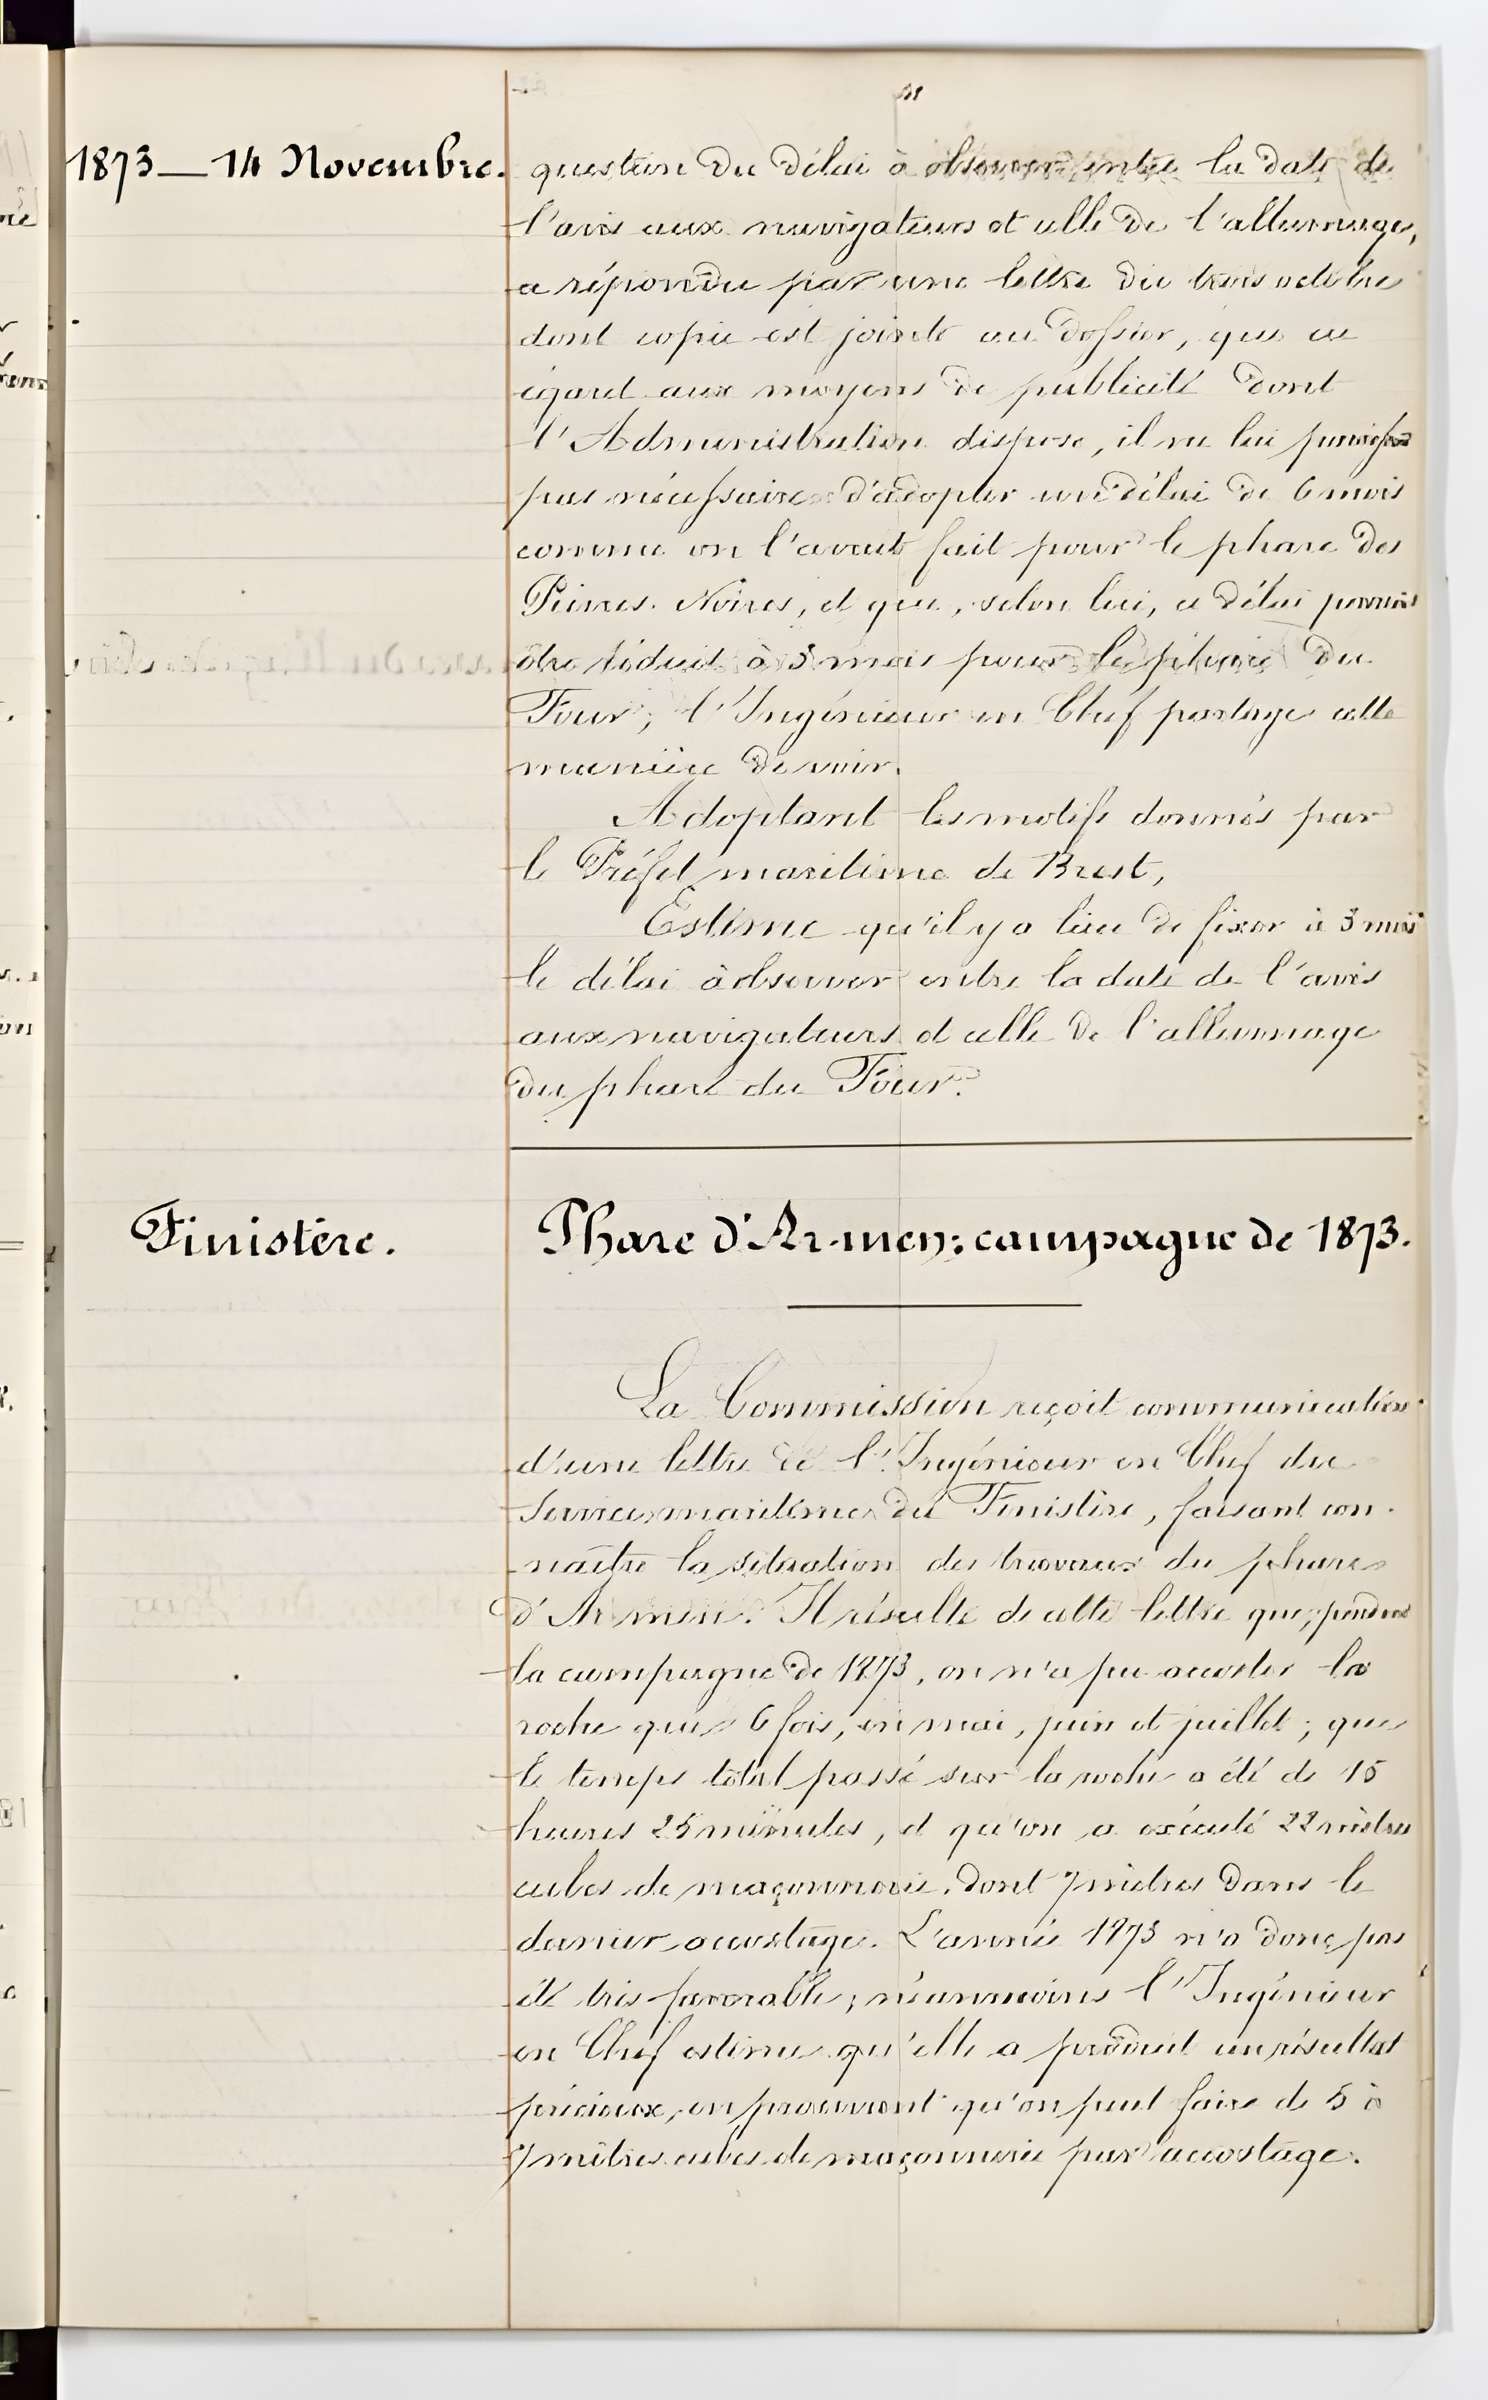 1873 — 14 Novembre.
question du délai à observer entre la date de
l'avis aux navigateurs et celle de l'allumage,
a répondu par une lettre du trois octobre
dont copie est jointe au dossier, que eu
égard aux moyens de publicité dont
l'Administration dispose, il ne lui paraissait
pas nécessaire d'adopter un délai de 6 mois
comme on l'avait fait pour le phare des
Pierres Noires, et que, selon lui, ce délai pourrait
être réduit à 3 mois pour le phare du
Four; l'Ingénieur en Chef partage cette
manière de voir.
Adoptant les motifs donnés par
le Préfet maritime de Brest,
Estime qu'il y a lieu de fixer à 3 mois
le délai à observer entre la date de l'avis
aux navigateurs et celle de l'allumage
du phare du Four.
Finistère.
Phare d'Ar-men; campagne de 1873.
La Commission reçoit communication
d'une lettre de l'Ingénieur en Chef du
Service maritime du Finistère, faisant con-
naître la situation des travaux du phare
d'Ar men. Il résulte de cette lettre que, pendant
la campagne de 1873, on n'a pu accoster la
roche que 6 fois, en mai, juin et juillet; que
le temps total passé sur la roche a été de 15
heures 25 minutes, et qu'on a exécuté 22 mètres
cubes de maçonnerie, dont 7 mètres dans le
dernier accostage. L'année 1873 n'a donc pas
été très favorable; néanmoins l'Ingénieur
en Chef estime qu'elle a produit un résultat
précieux, en prouvant qu'on peut faire de 5 à
7 mètres cubes de maçonnerie par accostage.